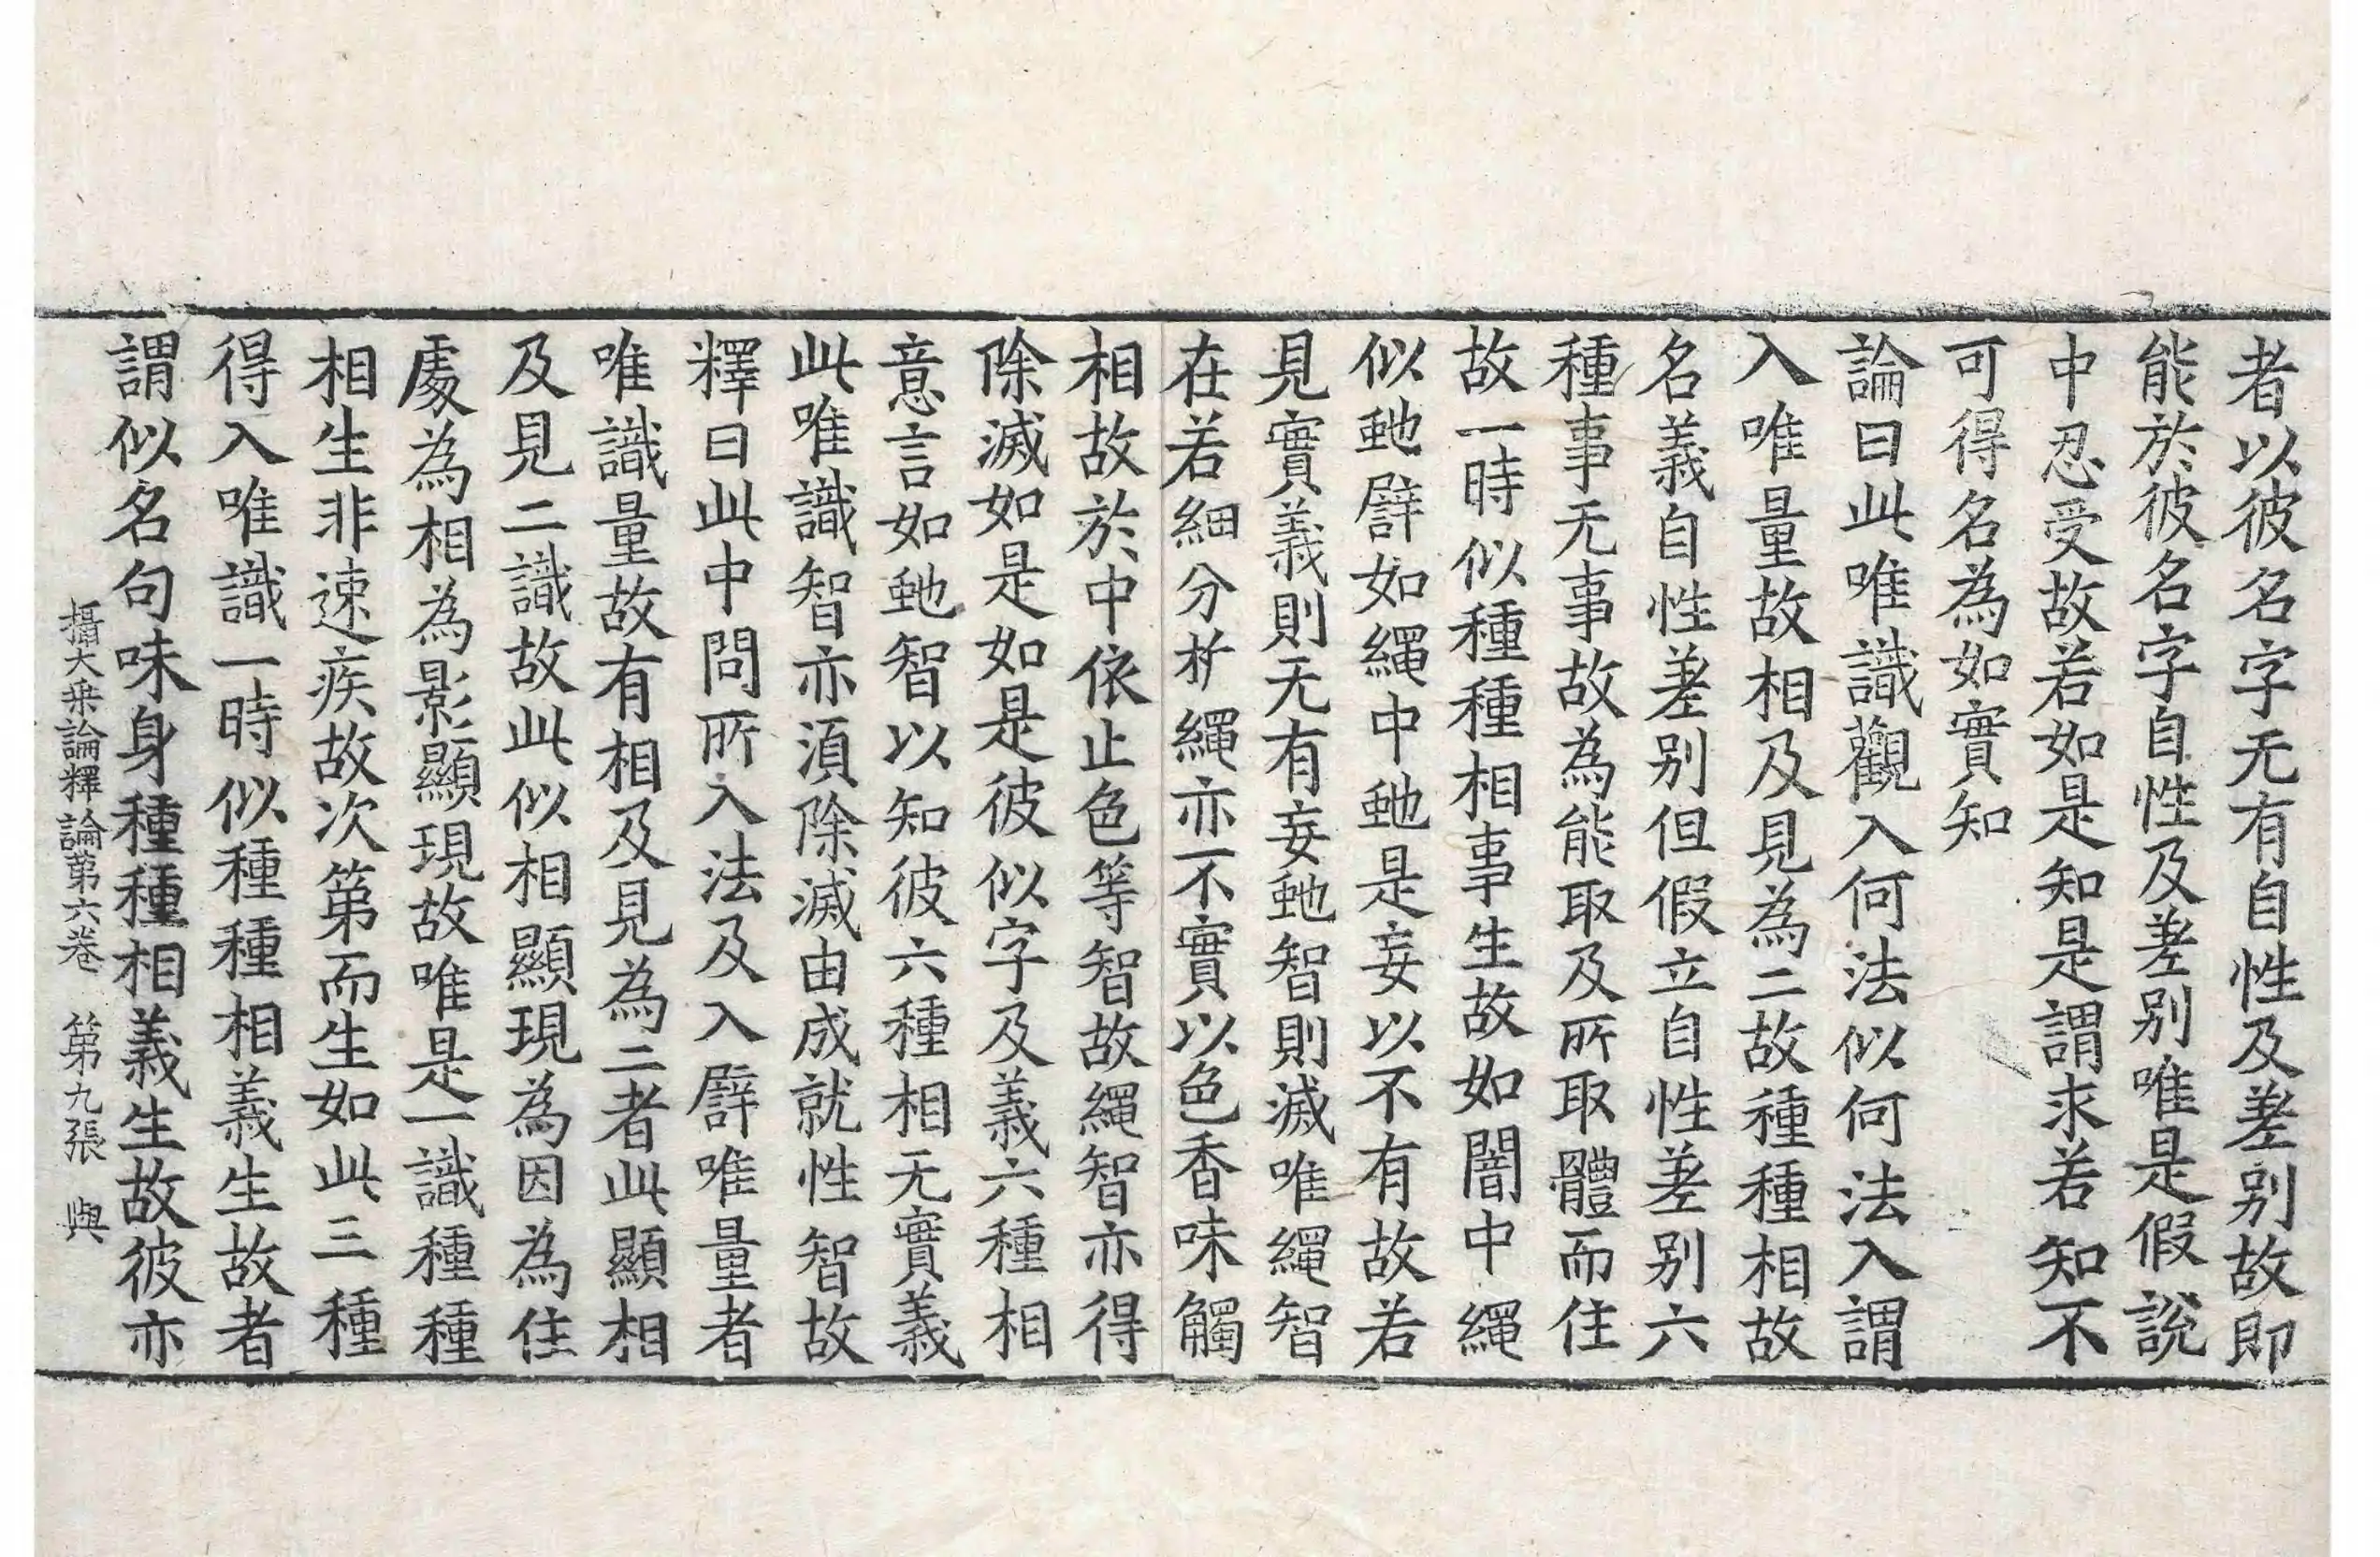 者以彼名字无有自性及差别故即
能於彼名字自性及差别唯是假說
中忍受故若如是知是謂求若知不
可得名為如實知
論曰此唯識觀入何法似何法入謂
入唯量故相及見為二故種種相故
名義自性差别但假立自性差别六
種事无事故為能取及所取體而住
故一時似種種相事生故如闇中繩
似虵譬如繩中虵是妄以不有故若
見實義則无有妄虵智則滅唯繩智
在若細分析繩亦不實以色香味觸
相故於中依止色等智故繩智亦得
除滅如是如是彼似字及義六種相
意言如虵智以知彼六種相无實義
此唯識智亦湏除滅由成就性智故
釋曰此中問所入法及入譬唯量者
唯識量故有相及見為二者此顯相
及見二識故此似相顯現為因為住
處為相為影顯現故唯是一識種種
相生非速疾故次第而生如此三種
得入唯識一時似種種相義生故者
謂似名句味身種種相義生故彼亦
攝大乗論釋論第六卷　第九張　與